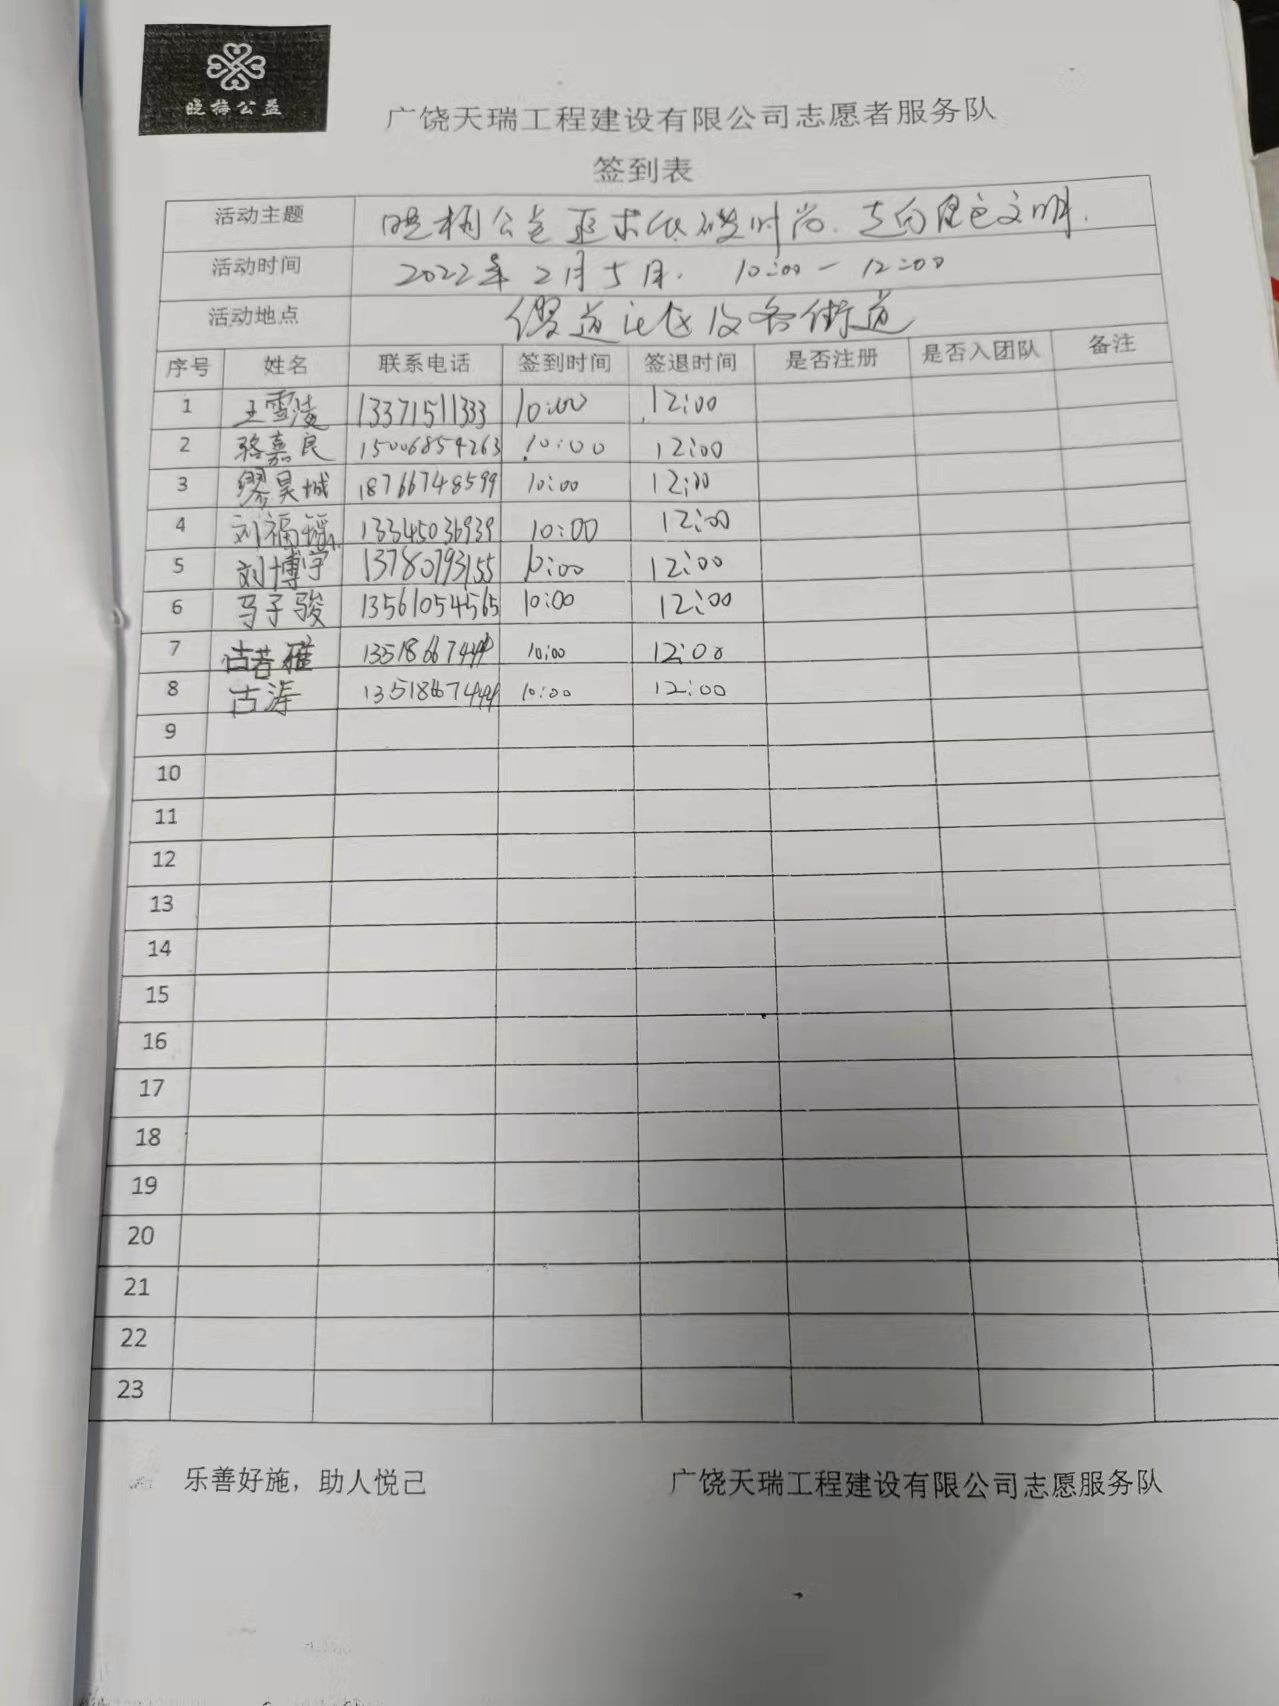 晓梅公益
广饶天瑞工程建设有限公司志愿者服务队
签到表
活动主题 晓梅公益 追求低碳时尚.走向绿色文明.
活动时间 2022年2月5日. 10:00-12:00
活动地点 缪道社区及各街道
序号 姓名 联系电话 签到时间 签退时间 是否注册 是否入团队 备注
1 王雪凌 13371511333 10:00 12:00
2 骆嘉良 15006854263 10:00 12:00
3 缪昊城 18766748599 10:00 12:00
4 刘福 13345036939 10:00 12:00
5 刘博宇 13780793155 10:00 12:00
6 马子骏 13561054565 10:00 12:00
7 古若雅 10:00 12:00
8 古涛 10:00 12:00
9
10
11
12
13
14
15
16
17
18
19
20
21
22
23
乐善好施，助人悦己 广饶天瑞工程建设有限公司志愿服务队